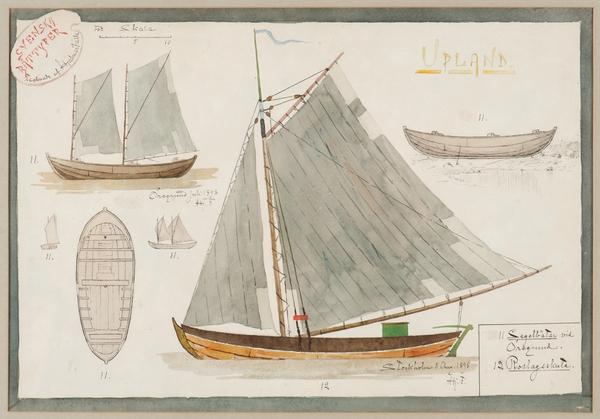 SVENSKA
BÅTTYPER
Skala
5 10
UPLAND.
11.
11.
Öregrund Juli 1898
11.
11.
11.
12
Stockholm 8 Aug. 1898
11 Segelbåtar vid
Öregrund.
12 Roslagsskuta.